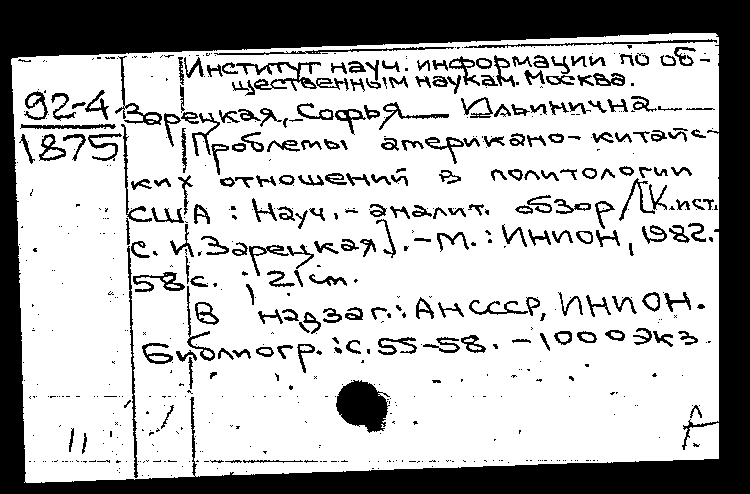 Институт науч. информации по об-
щественным наукам. Москва.
92-4
1875
Зарецкая, Софья Ильинична.
Проблемы американо-китайс-
ких отношений в политологии
США : Науч.-аналит. обзор / [К.ист.
с. И.Зарецкая]. - М. : ИНИОН, 1982.-
58 с. ; 21 см.
В надзаг.: АН СССР, ИНИОН.
Библиогр. : с. 55-58. - 1000 экз.
11